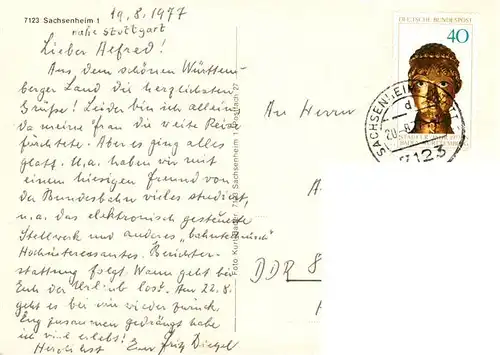 19.8.1977
7123 Sachsenheim 1
nahe Stuttgart
Lieber Alfred!
Aus dem schönen Württem-
berger Land die herzlichsten
Grüße! Leider bin ich allein
Da meine Frau die weite Reise
fürchtete. Aber es ging alles
glatt. U.a. haben wir mit
einem hiesigen Freund von
der Bundesbahn vieles studiert,
u.a. das elektronisch gesteuerte
Stellwerk und anderes „bahntechnisch"
Hochinteressantes. Berichter-
stattung folgt. Wann geht bei
Euch der Urlaub los? Am 22.8.
geht es bei mir wieder zurück.
Eng zusammen gedrängt habe
ich viel erlebt!
Herzlichst Euer Fritz
Foto Kurt 7123 Sachsenheim 1, Postfach 27
DEUTSCHE BUNDESPOST
40
SACHSENHEIM
d
7123
An Herrn
A
DDR 8